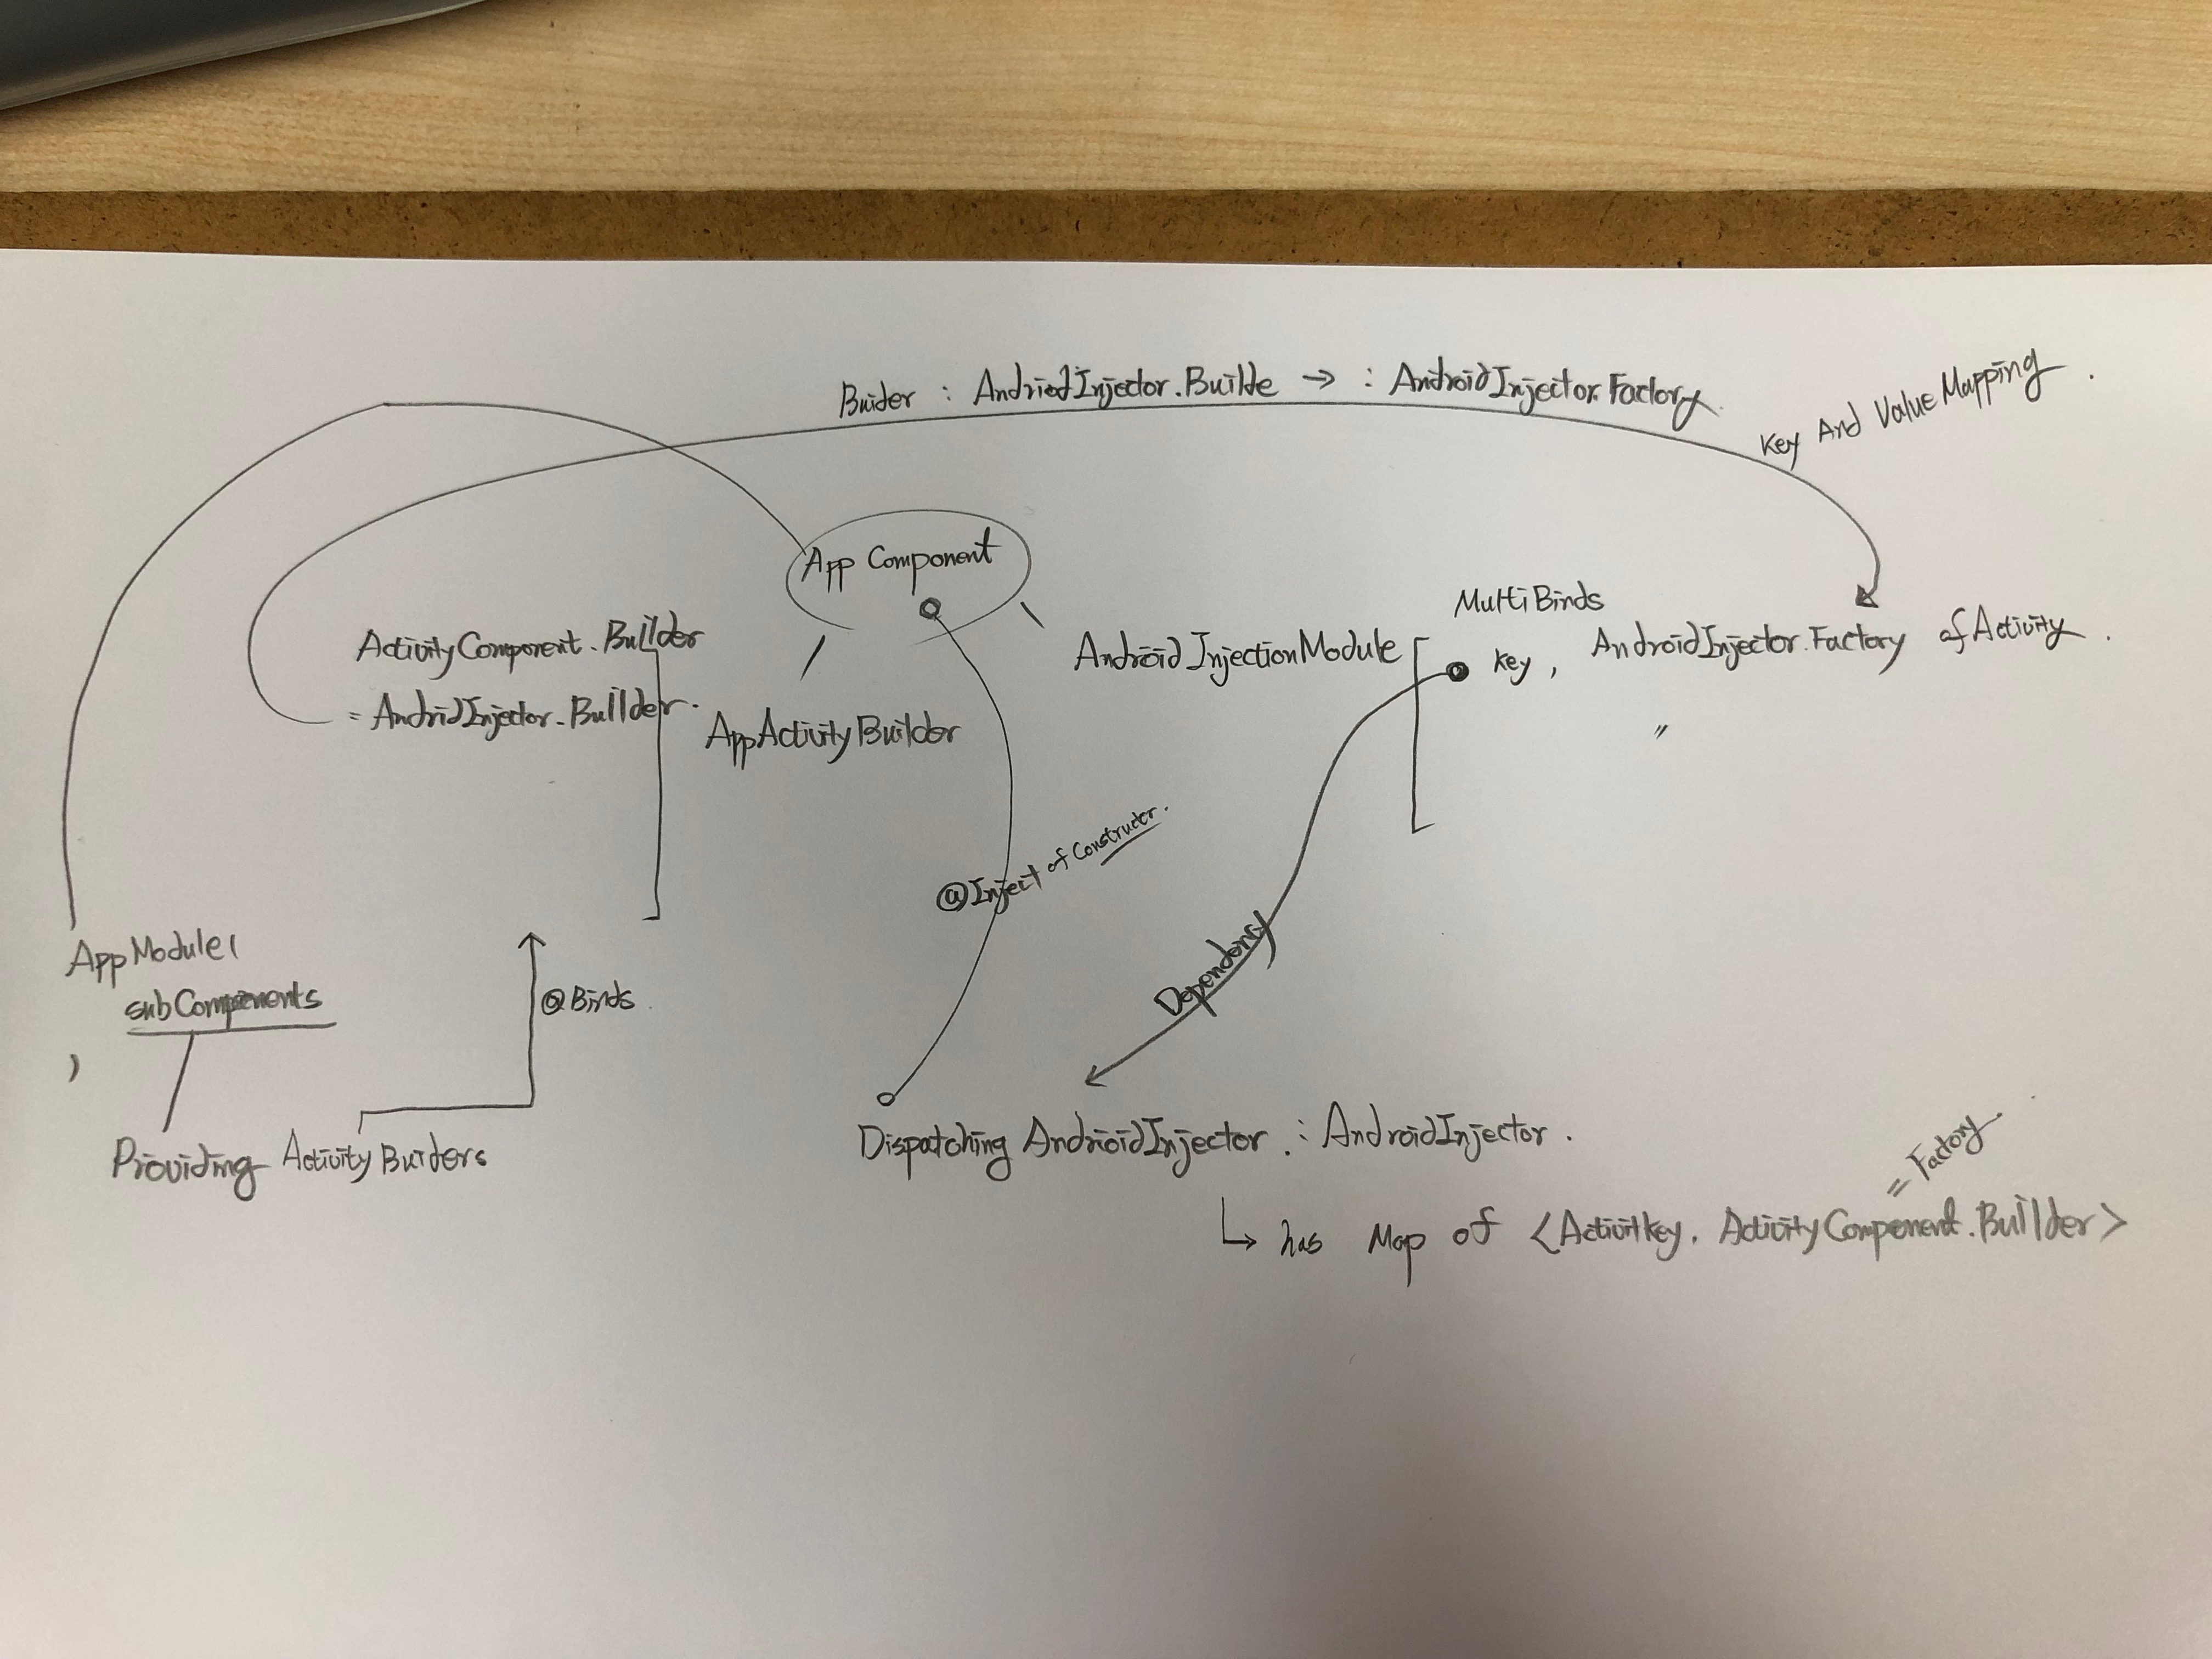 Buider : AndriodInjector.Builde → : AndroidInjector.Factory.
Key And Value Mapping.
App Component
MultiBinds
ActivityComponent.Builder
= AndridInjector.Builder.
AppActivityBuilder
AndroidInjectionModule
Key, AndroidInjector.Factory of Activity.
〃
@Inject of Constructer.
Dependency
AppModule(
subComponents
)
@Binds.
Providing ActivityBuiders
Dispatching AndrioidInjector. : AndroidInjector.
= Factory.
↳ has Map of <Activitkey, ActivityComponent.Builder>